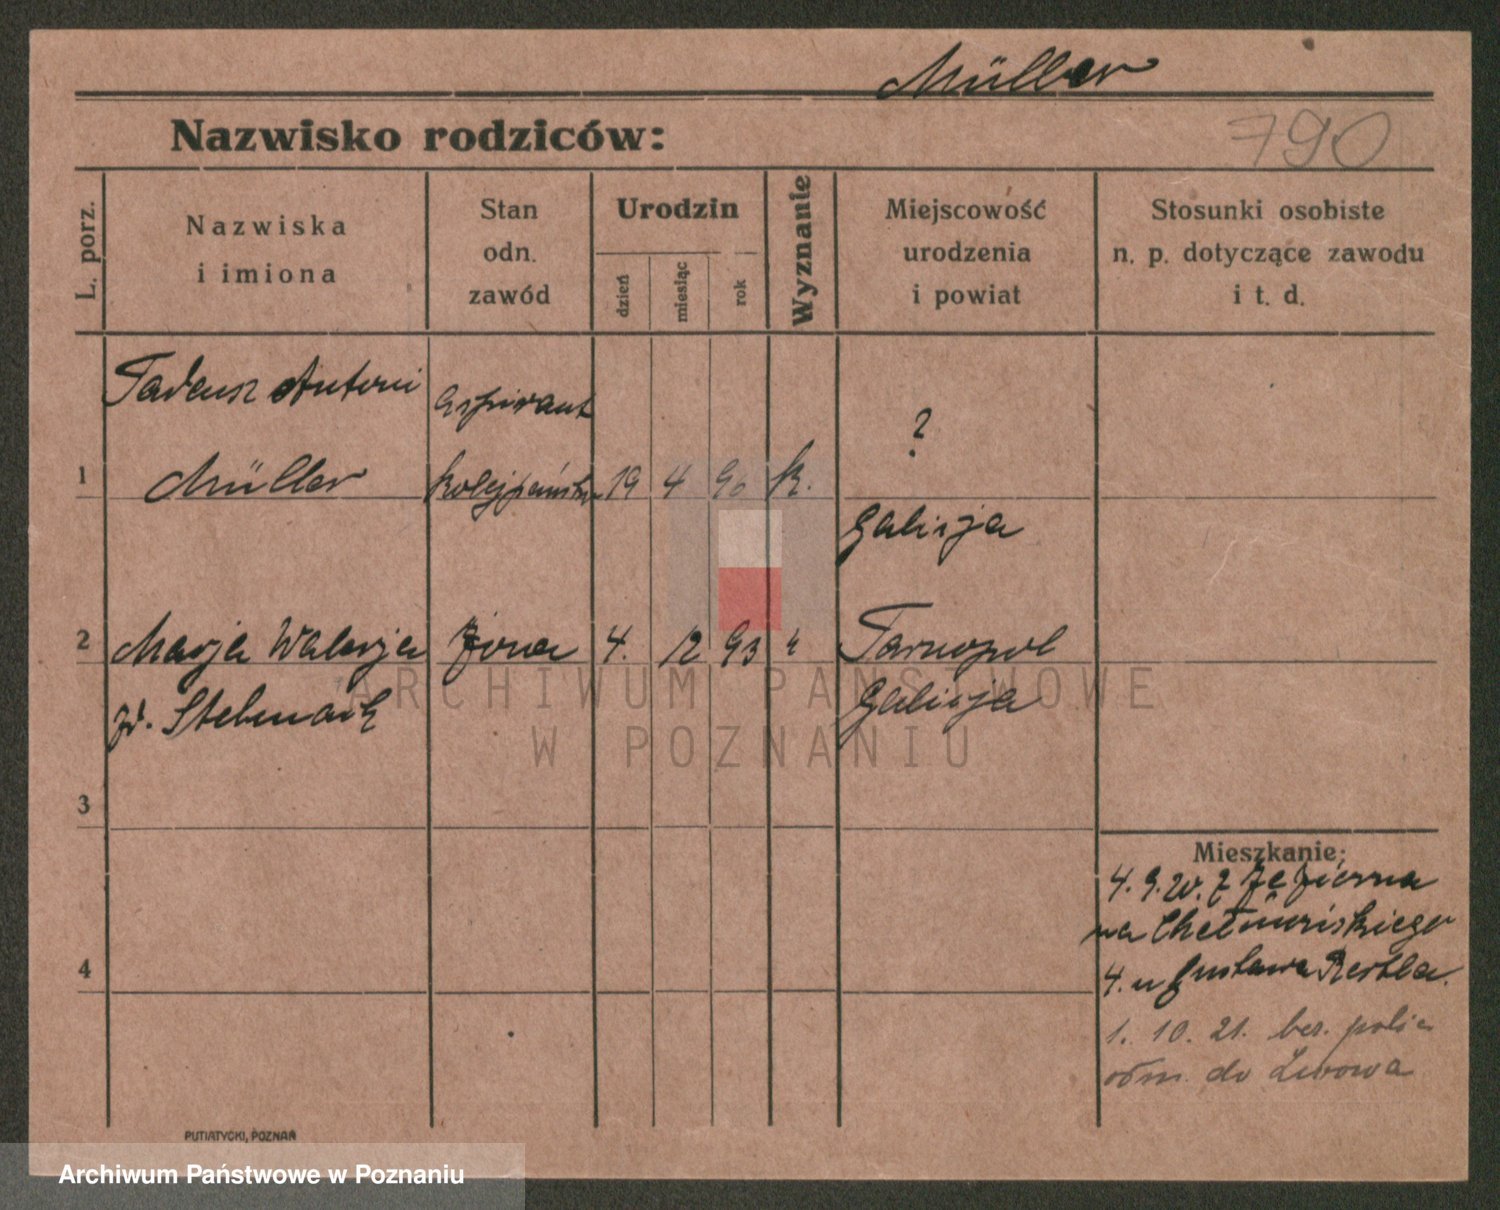 Müller
Nazwisko rodziców:
790
L. porz.
Nazwiska
i imiona
Stan
odn.
zawód
Urodzin
dzień
miesiąc
rok
Wyznanie
Miejscowość
urodzenia
i powiat
Stosunki osobiste
n. p. dotyczące zawodu
i t. d.
Tadeusz Antoni
aspirant
?
1 Müller kolej państw 19 4 96 k.
Galicja
2 Marja Walerja żona 4. 12 93 " Tarnopol
zd. Stelmach Galicja
ARCHIWUM PAŃSTWOWE
W POZNANIU
3
Mieszkanie:
4. 9. 20. z Jezierna
na Chełmońskiego
4. u Gustawa Restla.
4
1. 10. 21. bez. polic
odm. do Lwowa
PUTIATYCKI, POZNAŃ
Archiwum Państwowe w Poznaniu